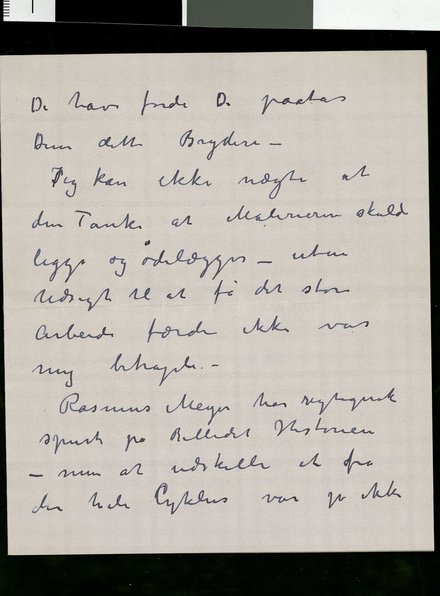 De have fordi De paatar
Dem dette Bryderi –
Jeg kan ikke nægte at
den Tanke at Malerierne skulde
ligge og ødelægges – uten
Udsigt til at få det store
Arbeide færdi ikke var
mig behageli. –
Rasmus Meyer har rigtignok
spurt på Billedet Historien
– men at udskille et fra
den hele Cyklus var jo ikke